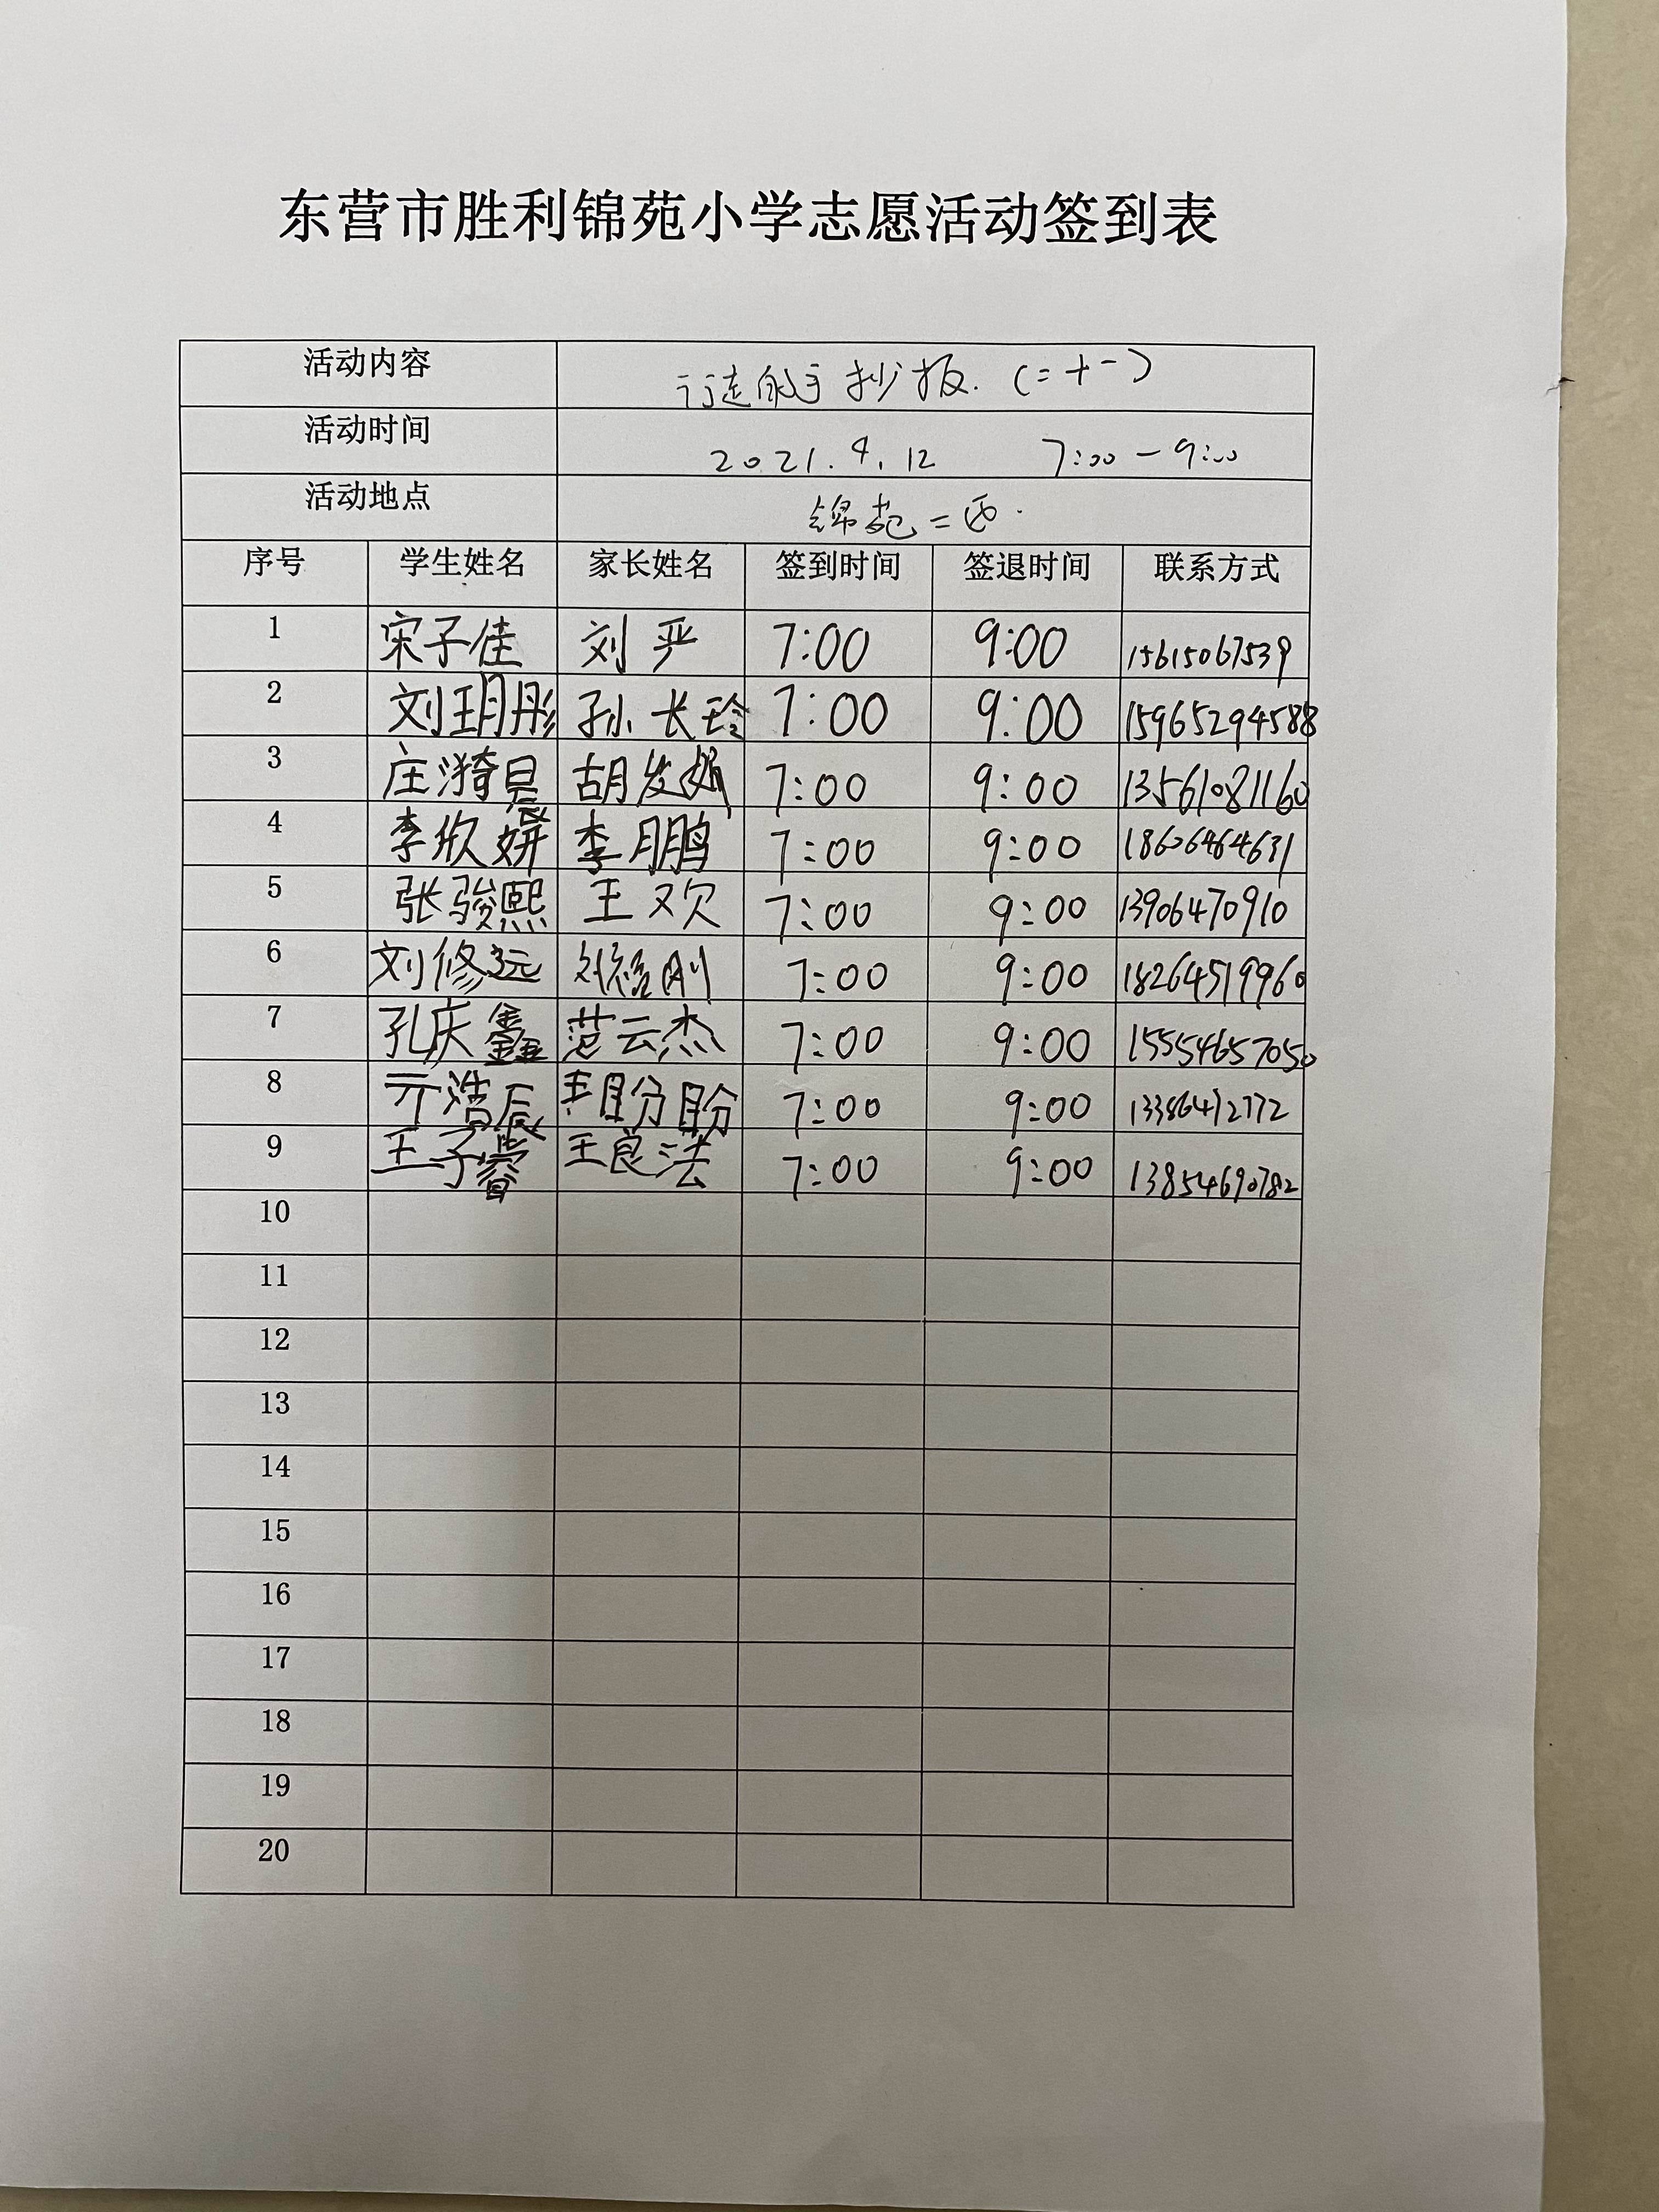 东营市胜利锦苑小学志愿活动签到表
活动内容 手抄报. (二十一)
活动时间 2021.4.12 7:00-9:00
活动地点 锦苑二西.
序号 学生姓名 家长姓名 签到时间 签退时间 联系方式
1 宋子佳 刘严 7:00 9:00 15615067539
2 刘玥彤 孙长玲 7:00 9:00 15965294588
3 庄漪晨 7:00 9:00 13561081160
4 李欣妍 李鹏 7:00 9:00 18606464631
5 张骏熙 王欢 7:00 9:00 13906470910
6 刘修远 7:00 9:00 18264519960
7 孔庆鑫 范云杰 7:00 9:00 15554657050
8 亓浩辰 7:00 9:00 13386472772
9 王子睿 王良法 7:00 9:00 13854690782
10
11
12
13
14
15
16
17
18
19
20